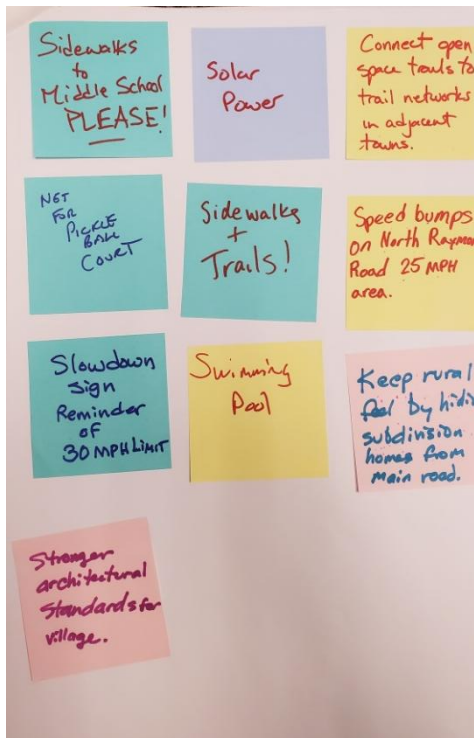 Sidewalks
to
Middle School
PLEASE!
Solar
Power
Connect open
space trails to
trail networks
in adjacent
towns.
NET
FOR
PICKLE
BALL
COURT
Sidewalks
+
Trails!
Speed bumps
on North Raymon
Road 25 MPH
area.
Slowdown
Sign
Reminder
of
30 MPH LIMIT
Swimming
Pool
Keep rural
feel by hidi
subdivision
homes from
main road.
Stronger
architectural
standards for
village.